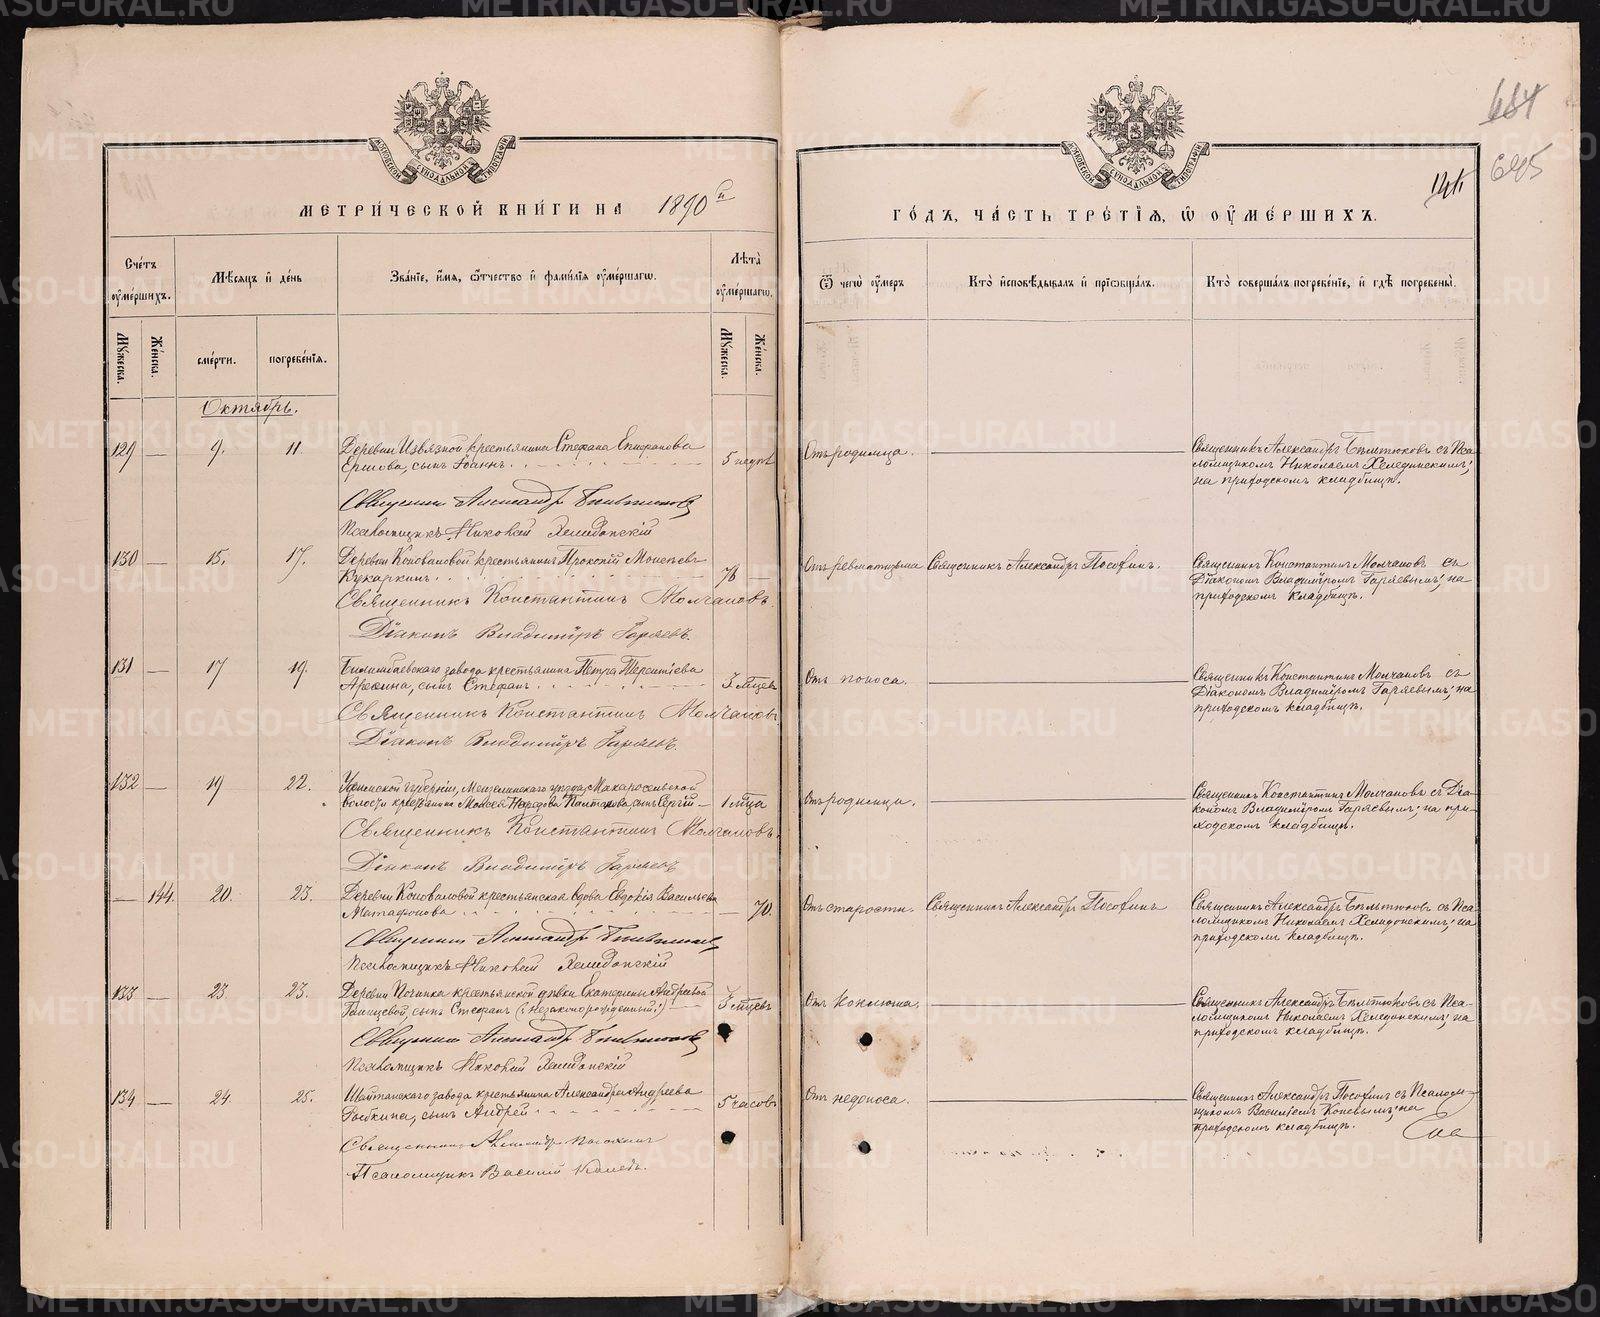 МЕТРИ́ЧЕСКОЙ КНИ́ГИ НА 1890 й
Сче́тъ оумершихъ.
Мѣсяцъ и де́нь
Зва́нїе, имя, ѿтчество и фами́лїя оуме́ршагѡ.
Лѣта̀ оуме́ршагѡ.
Мужеска.
Же́нска.
сме́рти.
погребе́нїя.
Мужеска.
Же́нска.
Октябрь.
129 — 9. 11. Деревни Извязной крестьянина Стефана Епифанова
Ершова, сынъ Іоаннъ. 5 недѣл
Священникъ Александръ
Псаломщикъ Николай Хелидонскій
130 — 15. 17. Деревни Коноваловой крестьянинъ Прокопій Моисеевъ
Кукаркинъ. 76 —
Священникъ Константинъ Молчановъ.
Діаконъ Владиміръ Гаряевъ.
131 — 17 19. Билимбаевскаго завода крестьянина Петра Терентіева
сынъ Стефанъ. 3 мѣсцев
Священникъ Константинъ Молчановъ
Діаконъ Владиміръ Гаряевъ.
132 — 19 22. Уфимской губерніи, Мензелинскаго уѣзда,
волости крестьянина сынъ Сергій — 1 мѣсца
Священникъ Константинъ Молчановъ.
Діаконъ Владиміръ Гаряевъ
— 144. 20. 23. Деревни Коноваловой крестьянская вдова Евдокія Васильева
— 70.
Священникъ Александръ
Псаломщикъ Николай Хелидонскій
133 — 23 23. Деревни Починка крестьянской дѣвки Екатерины Андреевой
сынъ Стефанъ (незаконорожденный) — 3 мѣсцевъ
Священникъ Александръ
Псаломщикъ Николай Хелидонскій
134 — 24 25. Шайтанскаго завода крестьянина Александра Андреева
сынъ Андрей 5 часовъ
Священникъ Александръ
Псаломщикъ Василій
684
645
141.
ГО́ДЪ, ЧА́СТЬ ТРЕ́ТЇЯ, Ѡ ОУМЕ́РШИХЪ.
Ѿ чегѡ̀ оумеръ
Кто̀ исповѣ́дывалъ и прїобща́лъ.
Кто̀ соверша́лъ погребе́нїе, и гдѣ̀ погребены̀.
Отъ родимца. — Священникъ Александръ съ Пса-
ломщикомъ Николаемъ Хелидонскимъ;
на приходскомъ кладбищѣ.
Отъ ревматизма Священникъ Александръ Священникъ Константинъ Молчановъ съ
Діакономъ Владиміромъ Гаряевымъ; на
приходскомъ кладбищѣ.
Отъ поноса. — Священникъ Константинъ Молчановъ съ
Діакономъ Владиміромъ Гаряевымъ; на
приходскомъ кладбищѣ.
Отъ родимца. — Священникъ Константинъ Молчановъ съ Діа-
кономъ Владиміромъ Гаряевымъ; на при-
ходскомъ кладбищѣ.
Отъ старости. Священникъ Александръ Священникъ Александръ съ Пса-
ломщикомъ Николаемъ Хелидонскимъ; на
приходскомъ кладбищѣ.
Отъ — Священникъ Александръ съ Пса-
ломщикомъ Николаемъ Хелидонскимъ; на
приходскомъ кладбищѣ.
Отъ недоноса. — Священникъ Александръ съ Псалом-
щикомъ Василіемъ на
приходскомъ кладбищѣ.
METRIKI.GASO-URAL.RU